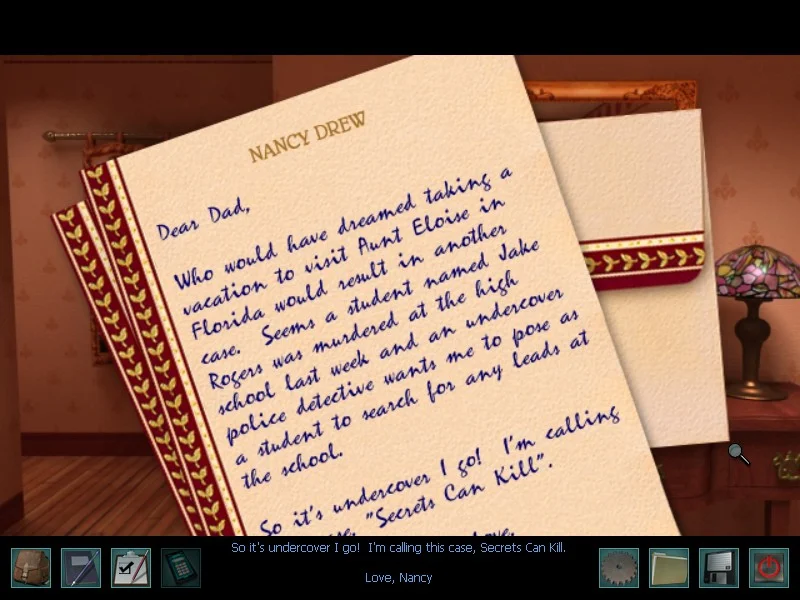 NANCY DREW
Dear Dad,
Who would have dreamed taking a
vacation to visit Aunt Eloise in
Florida would result in another
case. Seems a student named Jake
Rogers was murdered at the high
school last week and an undercover
police detective wants me to pose as
a student to search for any leads at
the school.
So it's undercover I go! I'm calling
"Secrets Can Kill".
So it's undercover I go! I'm calling this case, Secrets Can Kill.
Love, Nancy